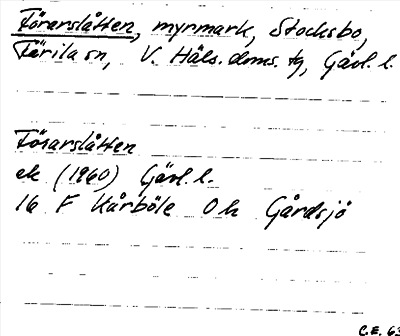 Förarslåtten, myrmark, Stocksbo,
Färila sn, V. Häls. doms. tg, Gävl. l.
Förarslåtten
ek (1960) Gävl. l.
16 F Kårböle O h Gårdsjö
C.E. 63